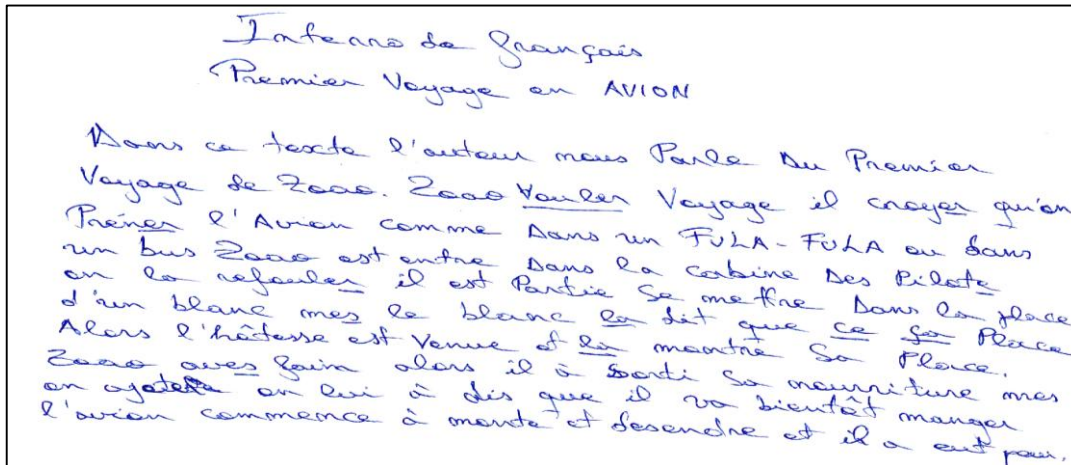 Interro de français
Premier Voyage en AVION
Dans ce texte l'auteur nous Parle Du Premier
Voyage de Zoao. Zoao Vouler Voyage il croyer qu'on
Préner l'Avion comme Dans un FULA-FULA ou dans
un bus Zoao est entre Dans la cabine Des Pilote
on la refouler il est Partie Se mettre Dans la place
d'un blanc mes le blanc la dit que ce sa Place
Alors l'hôtesse est Venue et la montre Sa Place.
Zoao aves faim alors il à Sorti Sa nourriture mes
on lui à dis que il va bientôt manger
l'avion commence à monte et desendre et il a eut peur.